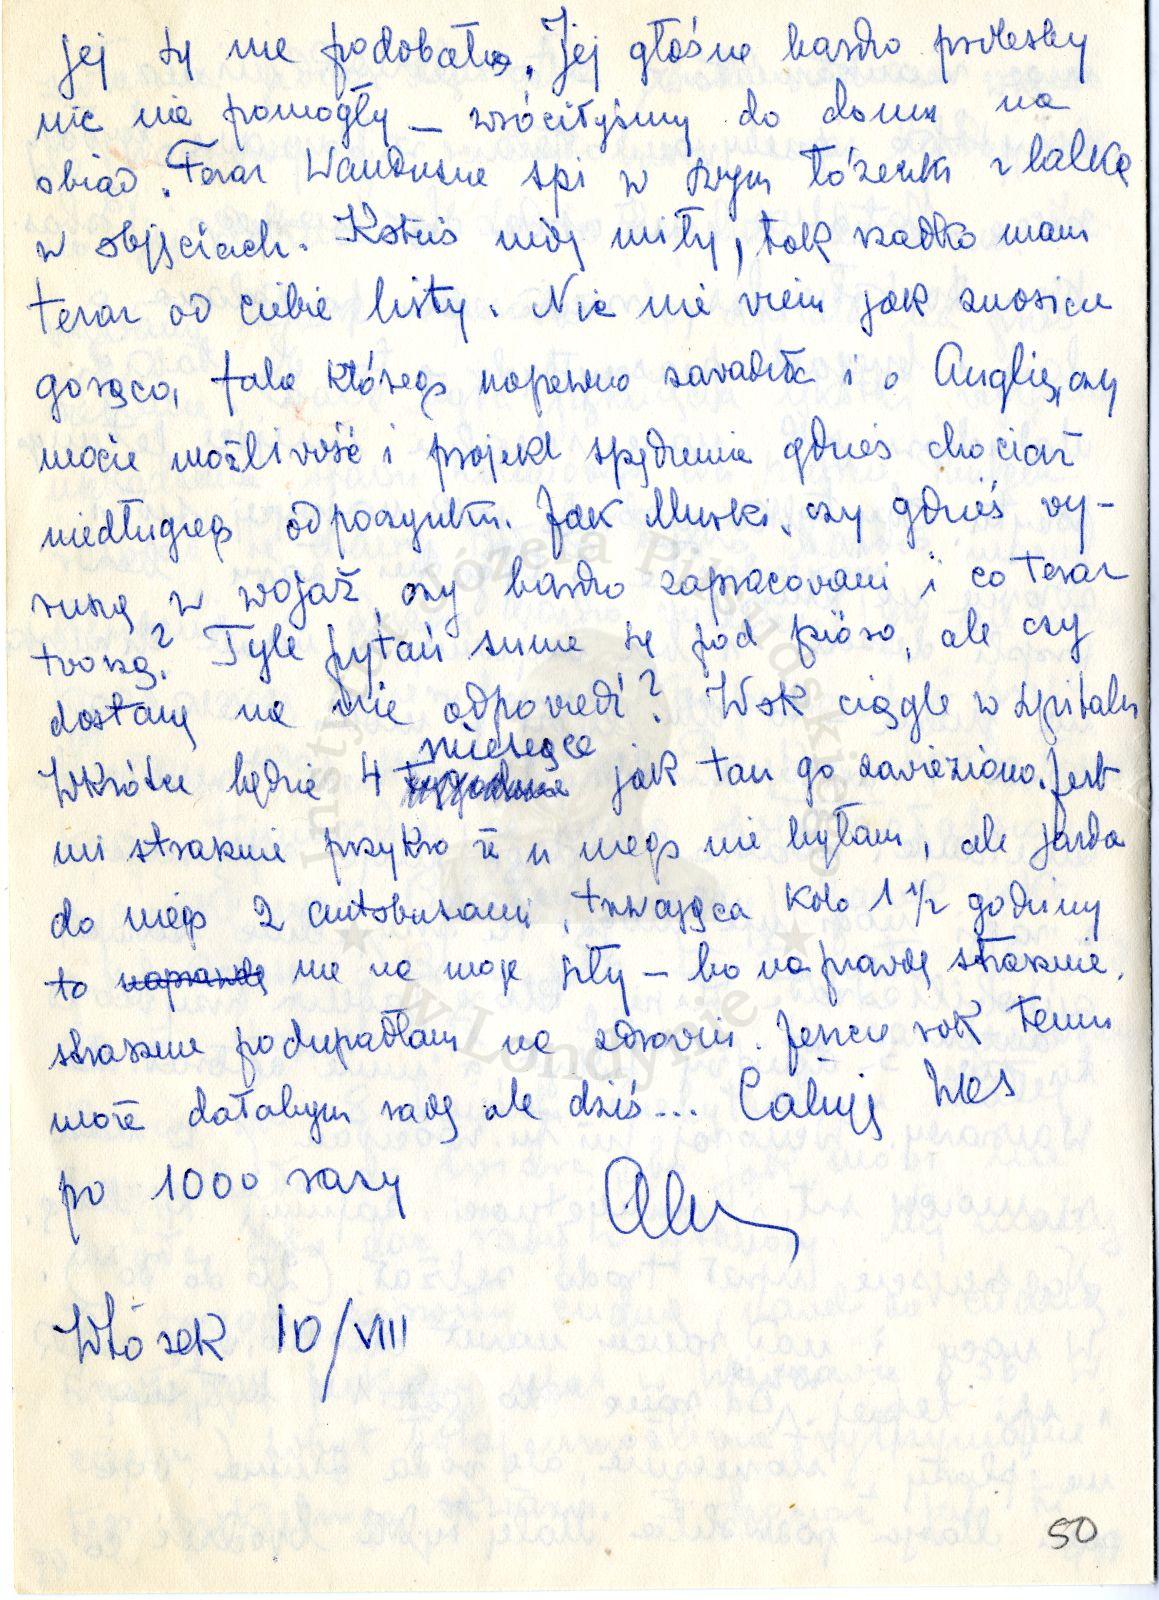 jej się nie podobało. Jej głośne bardzo protesty
nic nie pomogły – wróciłyśmy do domu na
obiad. Teraz Wandusne śpi w swym łóżeczku z lalką
w objęciach. Kotuś mój miły, tak rzadko mam
teraz od Ciebie listy. Nic nie wiem jak znosicie
gorąco, fala którego napewno zawadziła i o Anglię, czy
macie możliwość i projekt spędzenia gdzieś chociaż
niedługiego odpoczynku. Jak Muszki, czy gdzieś wy-
ruszą w wojaż, czy bardzo zapracowani i co teraz
tworzą? Tyle pytań sunie się pod pióro, ale czy
dostanę na nie odpowiedź? Wok ciągle w szpitalu
Wkrótce będzie 4 tygodnie miesiące jak tam go zawieziono. Jest
mi strasznie przykro że u niego nie byłam, ale jazda
do niego 2 autobusami, trwająca koło 1 1/2 godziny
to naprawdę nie na moje siły – bo naprawdę strasznie,
strasznie podupadłam na zdrowiu. Jeszcze rok temu
może dałabym radę ale dziś... Całuję Was
po 1000 razy
Wtorek 10/VIII
50
Instytut Józefa Piłsudskiego
w Londynie